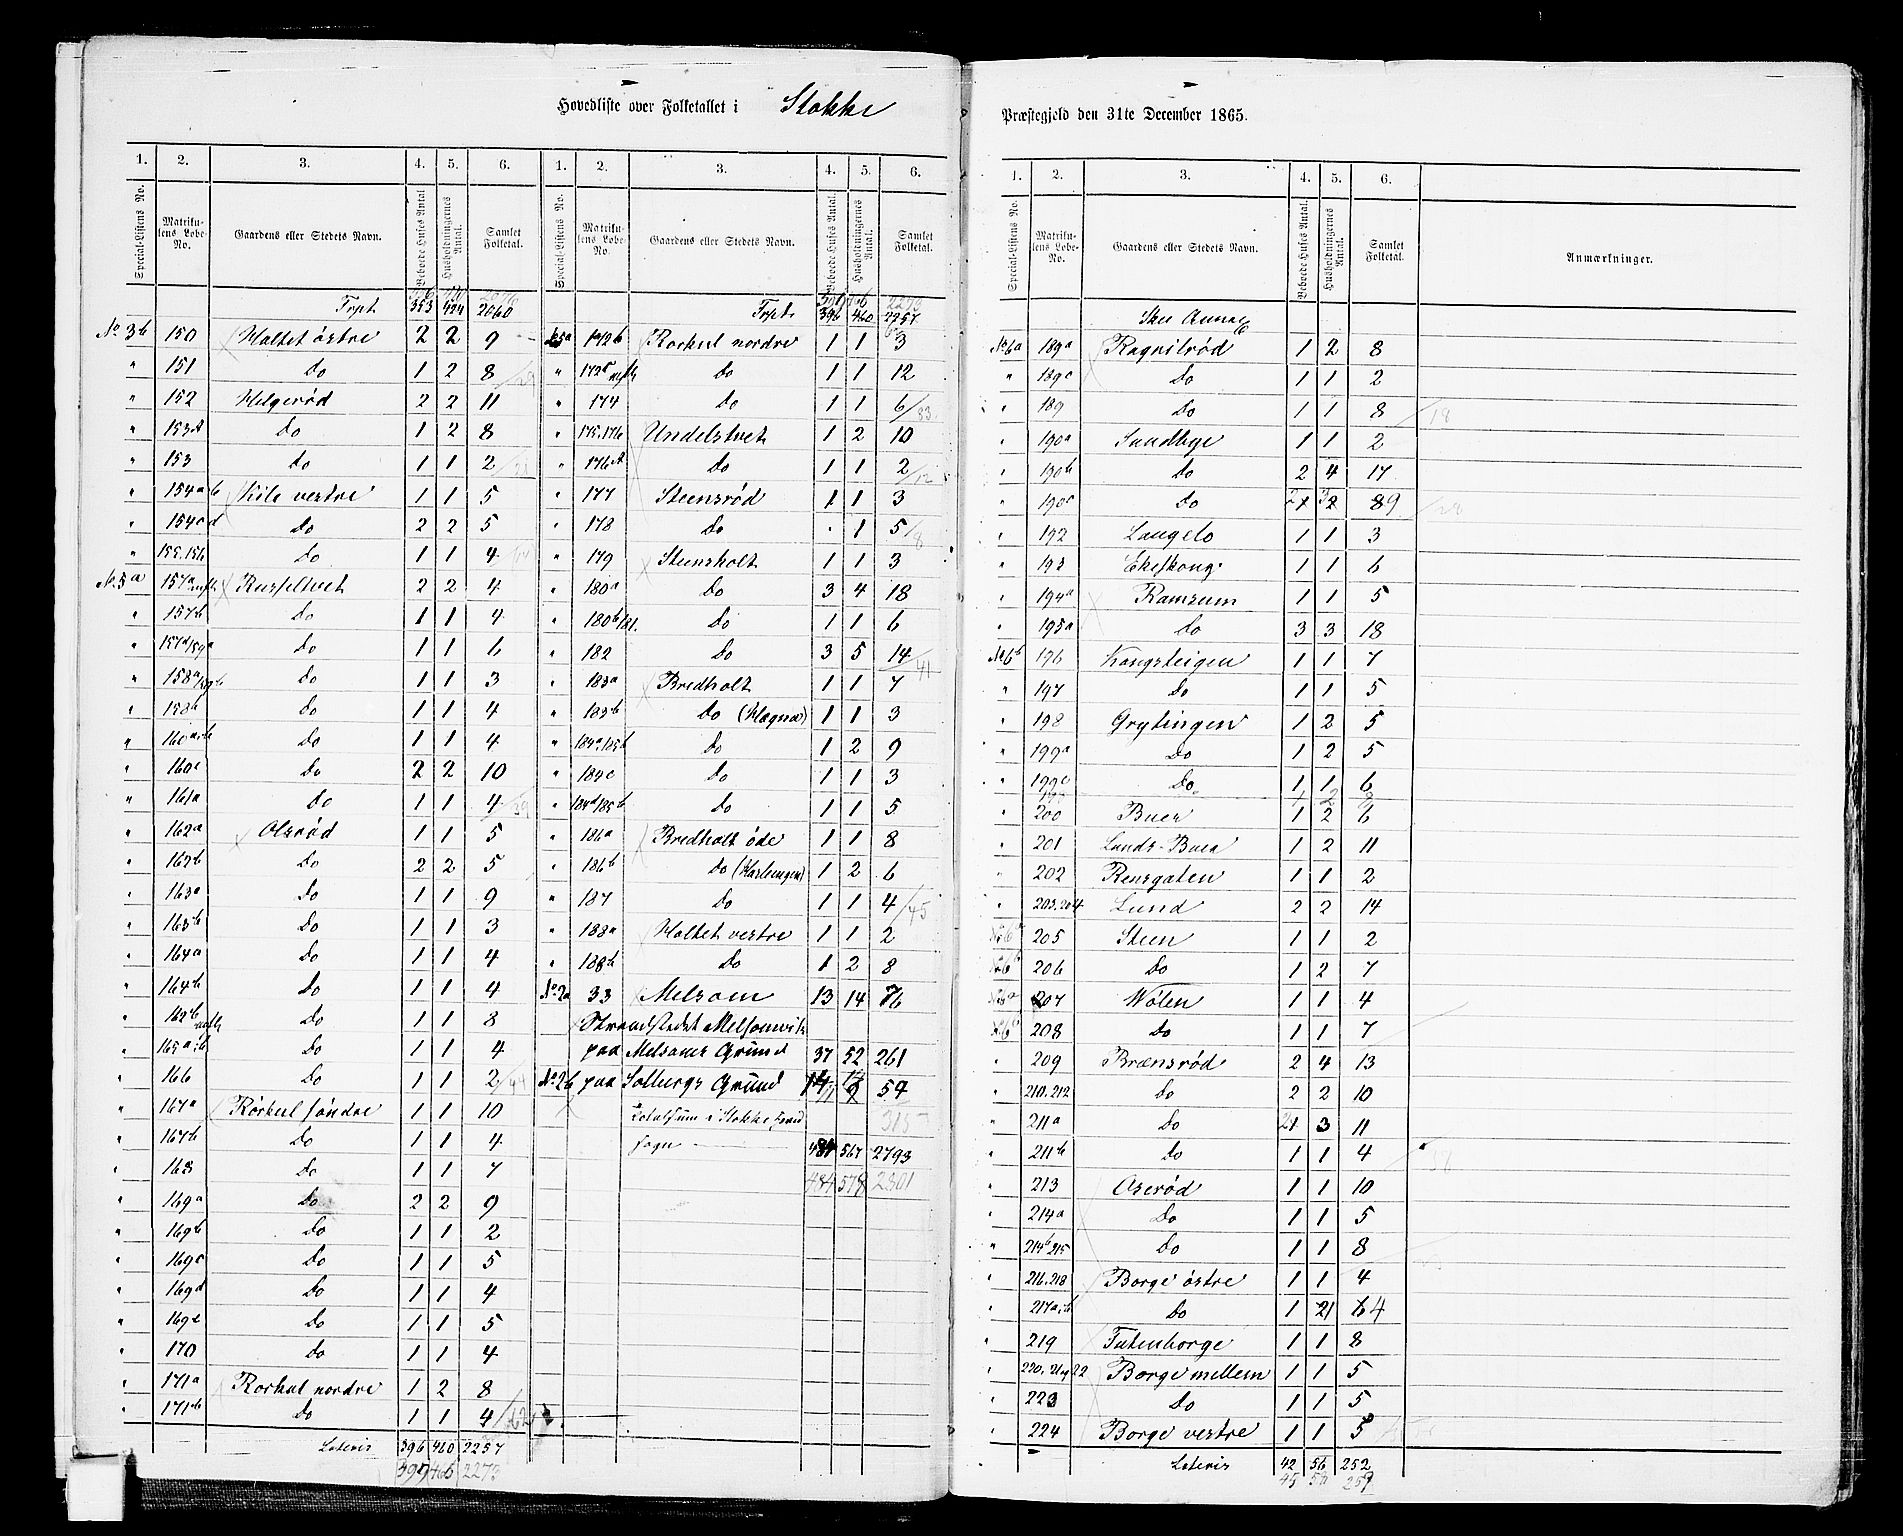 Hovedliste over Folketallet i Stokke
Præstegjeld den 31te December 1865.
1. 2. 3. 4. 5. 6. 1. 2. 3. 4. 5. 6.
Special-Listens No. Matrikulens Løbe-No. Gaardens eller Stedets Navn. Beboede Huses Antal. Husholdningernes Antal. Samlet Folketal.
Special-Listens No. Matrikulens Løbe-No. Gaardens eller Stedets Navn. Beboede Huses Antal. Husholdningernes Antal. Samlet Folketal.
Trpt 353 424 2060
No 3b 150 Holtet östre 2 2 9
" 151 Do 1 2 8
" 152 Helgeröd 2 2 11
" 153A Do 1 2 8
" 153 Do 1 1 2
" 154a b Kile vestre 1 1 5
" 154c d Do 2 2 5
" 155.156 Do 1 1 4
No 5a 157a Russeltvet 2 2 4
" 157b Do 1 1 4
" 157d 159a Do 1 1 6
" 158a 159b Do 1 1 3
" 158b Do 1 1 4
" 160a.b Do 1 1 4
" 160c Do 2 2 10
" 161a Do 1 1 4
" 162a Olsröd 1 1 5
" 162b Do 2 2 5
" 163a Do 1 1 9
" 163b Do 1 1 3
" 164a Do 1 1 4
" 164b Do 1 1 4
" 162b Do 1 1 8
" 165a.b Do 1 1 4
" 166 Do 1 1 2
" 167a Rörkul söndre 1 1 10
" 167b Do 1 1 4
" 168 Do 1 1 7
" 169a Do 2 2 9
" 169b Do 1 1 2
" 169c Do 1 1 5
" 169d Do 1 1 4
" 169e Do 1 1 5
" 170 Do 1 1 4
" 171a Rorkul nordre 1 2 8
" 171b Do 1 1 4
Lateris 396 460 2257
397 466 2273
Trpt. 396 460 2257
5a 172b Rorkul nordre 1 1 3
" 172c Do 1 1 12
" 174 Do 1 1 6
" 175.176 Undelstvet 1 2 10
" 176A Do 1 1 2
" 177 Steensröd 1 1 3
" 178 Do . 1 5
" 179 Steensholt 1 1 3
" 180a Do 3 4 18
" 180b 181. Do 1 1 6
" 182 Do 3 5 14
" 183a Bredholt 1 1 7
" 183b Do (Hægna) 1 1 3
" 184a.185b Do 1 2 9
" 184c Do 1 1 3
" 184d 185b Do 1 1 5
" 186a Bredholt öde 1 1 8
" 186b Do (Harleengen) 1 2 6
" 187 Do 1 1 4
" 188a Holtet vestre 1 1 2
" 188b Do 1 2 8
No 2a 33 Melsom 13 14 76
Strandstedet Melsomvik
paa Melsoms Grund 37 52 261
No 2b paa Solbergs Grund 14 54
Totalsum i Stokke Hoved
sogn 484 567 2793
484 578 2801
1. 2. 3. 4. 5. 6.
Special-Listens No. Matrikulens Løbe-No. Gaardens eller Stedets Navn. Beboede Huses Antal. Husholdningernes Antal. Samlet Folketal. Anmærkninger.
No 6a 189a Ragnilröd 1 2 8
" 189c Do 1 1 2
" 189 Do 1 1 8
" 190a Sundbye 1 1 2
" 190b Do 2 4 17
" 190c Do 2 3 9
" 192 Langelo 1 1 3
" 193 Ekeskong 1 1 6
" 194a Ramsum 1 1 5
" 195a Do 3 3 18
No 6b 196 Kongsteigen 1 1 7
" 197 Do 1 1 5
" 198 Grytingen 1 2 5
" 199a Do 1 2 5
" 199c Do 1 1 6
" 200 Buer 1 2 6
" 201 Lunds-Buer 1 2 11
" 202 Rensgaten 1 1 2
" 203.204 Lund 2 2 14
205 Steen 1 1 2
No 6b 206 Do 1 2 7
No 6a 207 Wölen 1 1 4
208 Do 1 1 7
" 209 Brænsröd 2 4 13
" 210.212 Do 2 2 10
" 211a Do 2 3 11
" 211b Do 1 1 4
" 213 Oseröd 1 1 10
" 214a Do 1 1 5
" 214b 215 Do 1 1 8
" 216.218 Borge östre 1 1 4
" 217a.b Do 1 21 64
" 219 Futenborge 1 1 8
" 220. Borge mellem 1 1 5
" 223 Do 1 1 5
" 224 Borge vestre 1 1 5
Lateris 42 56 252
45 58 259